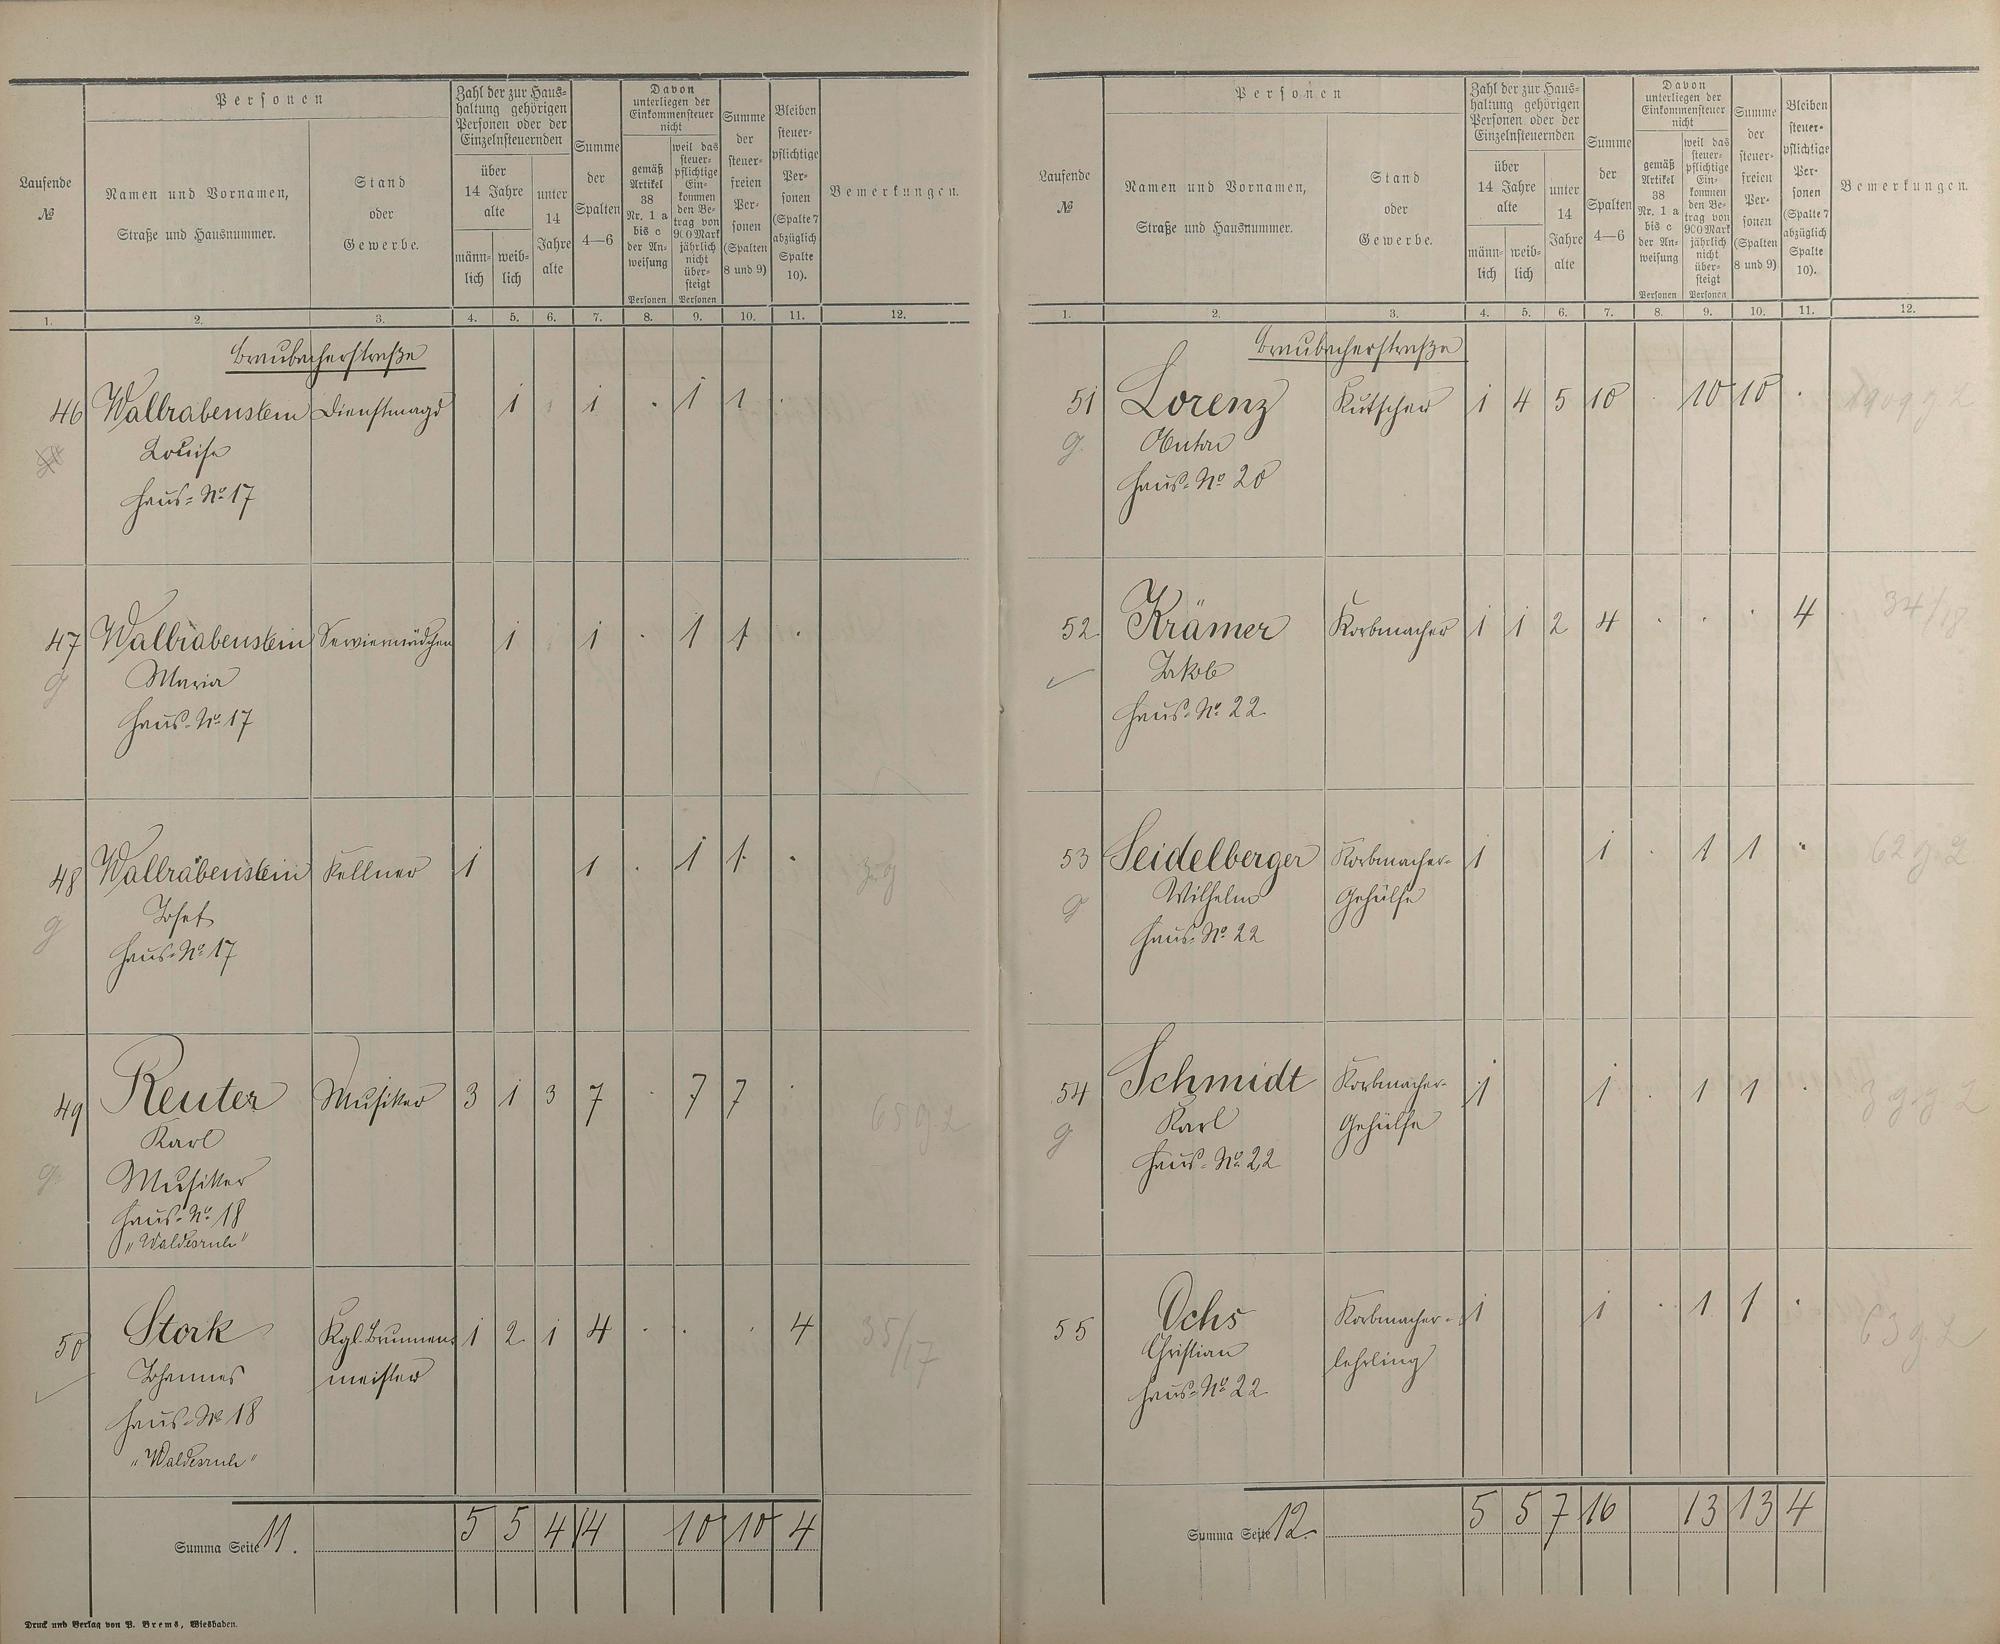 Laufende
№
Personen
Namen und Vornamen,
Straße und Hausnummer.
Stand
oder
Gewerbe.
Zahl der zur Haus-
haltung gehörigen
Personen oder der
Einzelnsteuernden
über
14 Jahre
alte
männ-
lich
weib-
lich
unter
14
Jahre
alte
Summe
der
Spalten
4—6
Davon
unterliegen der
Einkommensteuer
nicht
gemäß
Artikel
38
Nr. 1 a
bis c
der An-
weisung
Personen
weil das
steuer-
pflichtige
Ein-
kommen
den Be-
trag von
900 Mark
jährlich
nicht
über-
steigt
Personen
Summe
der
steuer-
freien
Per-
sonen
(Spalten
8 und 9)
Bleiben
steuer-
pflichtige
Per-
sonen
(Spalte 7
abzüglich
Spalte
10).
Bemerkungen.
1. 2. 3. 4. 5. 6. 7. 8. 9. 10. 11. 12.
Braubacherstraße
46 Wallrabenstein Dienstmagd 1 1 . 1 1 .
Louise
Haus-No 17
47 Wallrabenstein Serviermädchen 1 1 . 1 1 .
g
Maria
Haus-No 17
48 Wallrabenstein Kellner 1 1 . 1 1 .
g
Josef
Haus-No 17
49 Reuter Musiker 3 1 3 7 . 7 7 . 65 g. 2
g
Karl
Musiker
Haus-No 18
"Waldesruh"
50 Stork Kgl. Brunnen- 1 2 1 4 . . . 4 35/17
Johannes meister
Haus-No 18
"Waldesruh"
Summa Seite 11. 5 5 4 14 10 10 4
Druck und Verlag von P. Brems, Wiesbaden.
Laufende
№
Personen
Namen und Vornamen,
Straße und Hausnummer.
Stand
oder
Gewerbe.
Zahl der zur Haus-
haltung gehörigen
Personen oder der
Einzelnsteuernden
über
14 Jahre
alte
männ-
lich
weib-
lich
unter
14
Jahre
alte
Summe
der
Spalten
4—6
Davon
unterliegen der
Einkommensteuer
nicht
gemäß
Artikel
38
Nr. 1 a
bis c
der An-
weisung
Personen
weil das
steuer-
pflichtige
Ein-
kommen
den Be-
trag von
900 Mark
jährlich
nicht
über-
steigt
Personen
Summe
der
steuer-
freien
Per-
sonen
(Spalten
8 und 9)
Bleiben
steuer-
pflichtige
Per-
sonen
(Spalte 7
abzüglich
Spalte
10).
Bemerkungen.
1. 2. 3. 4. 5. 6. 7. 8. 9. 10. 11. 12.
Braubacherstraße
51 Lorenz Kutscher 1 4 5 10 . 10 10 .
g.
Anton
Haus-No 20
52 Krämer Korbmacher 1 1 2 4 . . . 4 34/18
Jakob
Haus-No 22
53 Seidelberger Korbmacher- 1 1 . 1 1 . 62 g. 2
g
Wilhelm Gehülfe
Haus-No 22
54 Schmidt Korbmacher- 1 1 . 1 1 .
g
Karl Gehülfe
Haus-No 22
55 Ochs Korbmacher- 1 1 . 1 1 . 63 g. 2
Christian lehrling
Haus-No 22
Summa Seite 12. 5 5 7 16 13 13 4